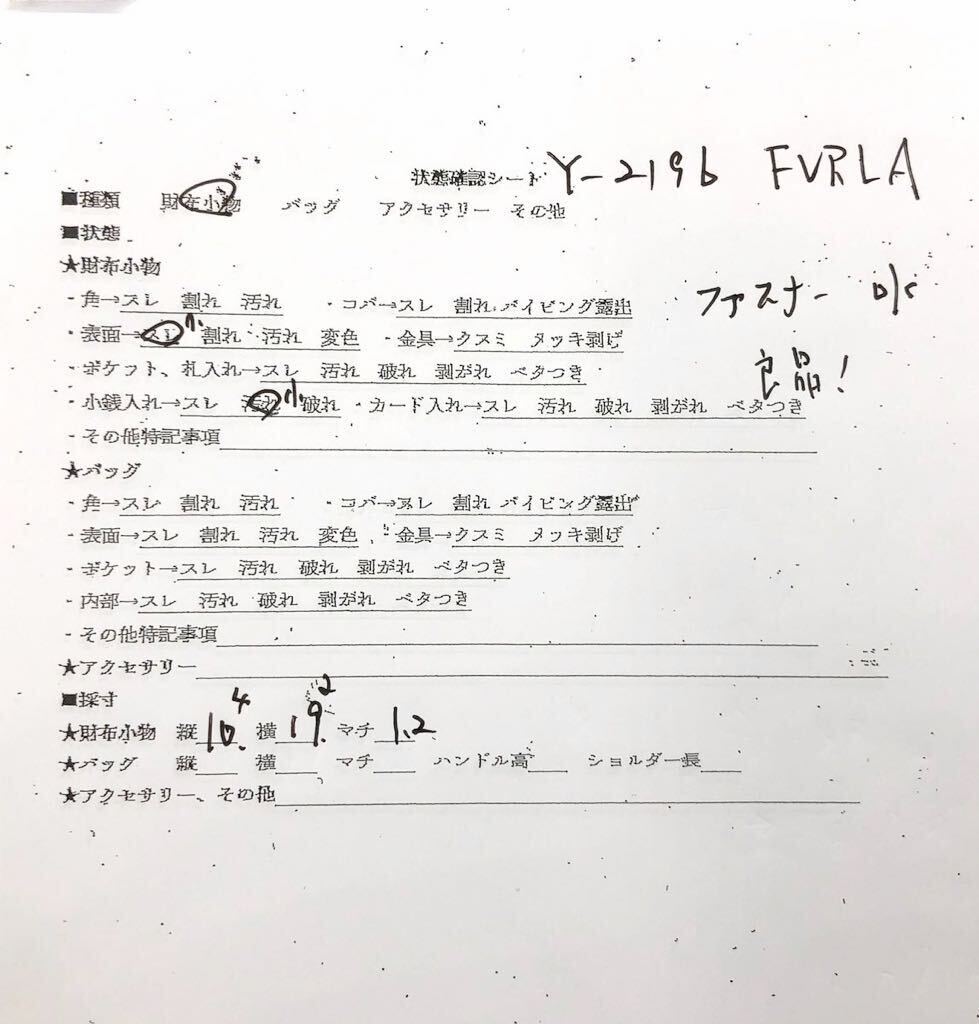 状態確認シート Y-2196 FURLA
■種類 財布小物 バッグ アクセサリー その他
■状態
★財布小物
ファスナー o/c
・角→スレ 割れ 汚れ ・コバ→スレ 割れ パイピング露出
小
・表面→スレ 割れ 汚れ 変色 ・金具→クスミ メッキ剥げ
良品!
・ポケット、札入れ→スレ 汚れ 破れ 剥がれ ベタつき
小
・小銭入れ→スレ 汚れ 破れ ・カード入れ→スレ 汚れ 破れ 剥がれ ベタつき
・その他特記事項
★バッグ
・角→スレ 割れ 汚れ ・コバ→スレ 割れ パイピング露出
・表面→スレ 割れ 汚れ 変色 ・金具→クスミ メッキ剥げ
・ポケット→スレ 汚れ 破れ 剥がれ ベタつき
・内部→スレ 汚れ 破れ 剥がれ ベタつき
・その他特記事項
★アクセサリー
■採寸
★財布小物 縦10.4 横19.2 マチ1.2
★バッグ 縦 横 マチ ハンドル高 ショルダー長
★アクセサリー、その他